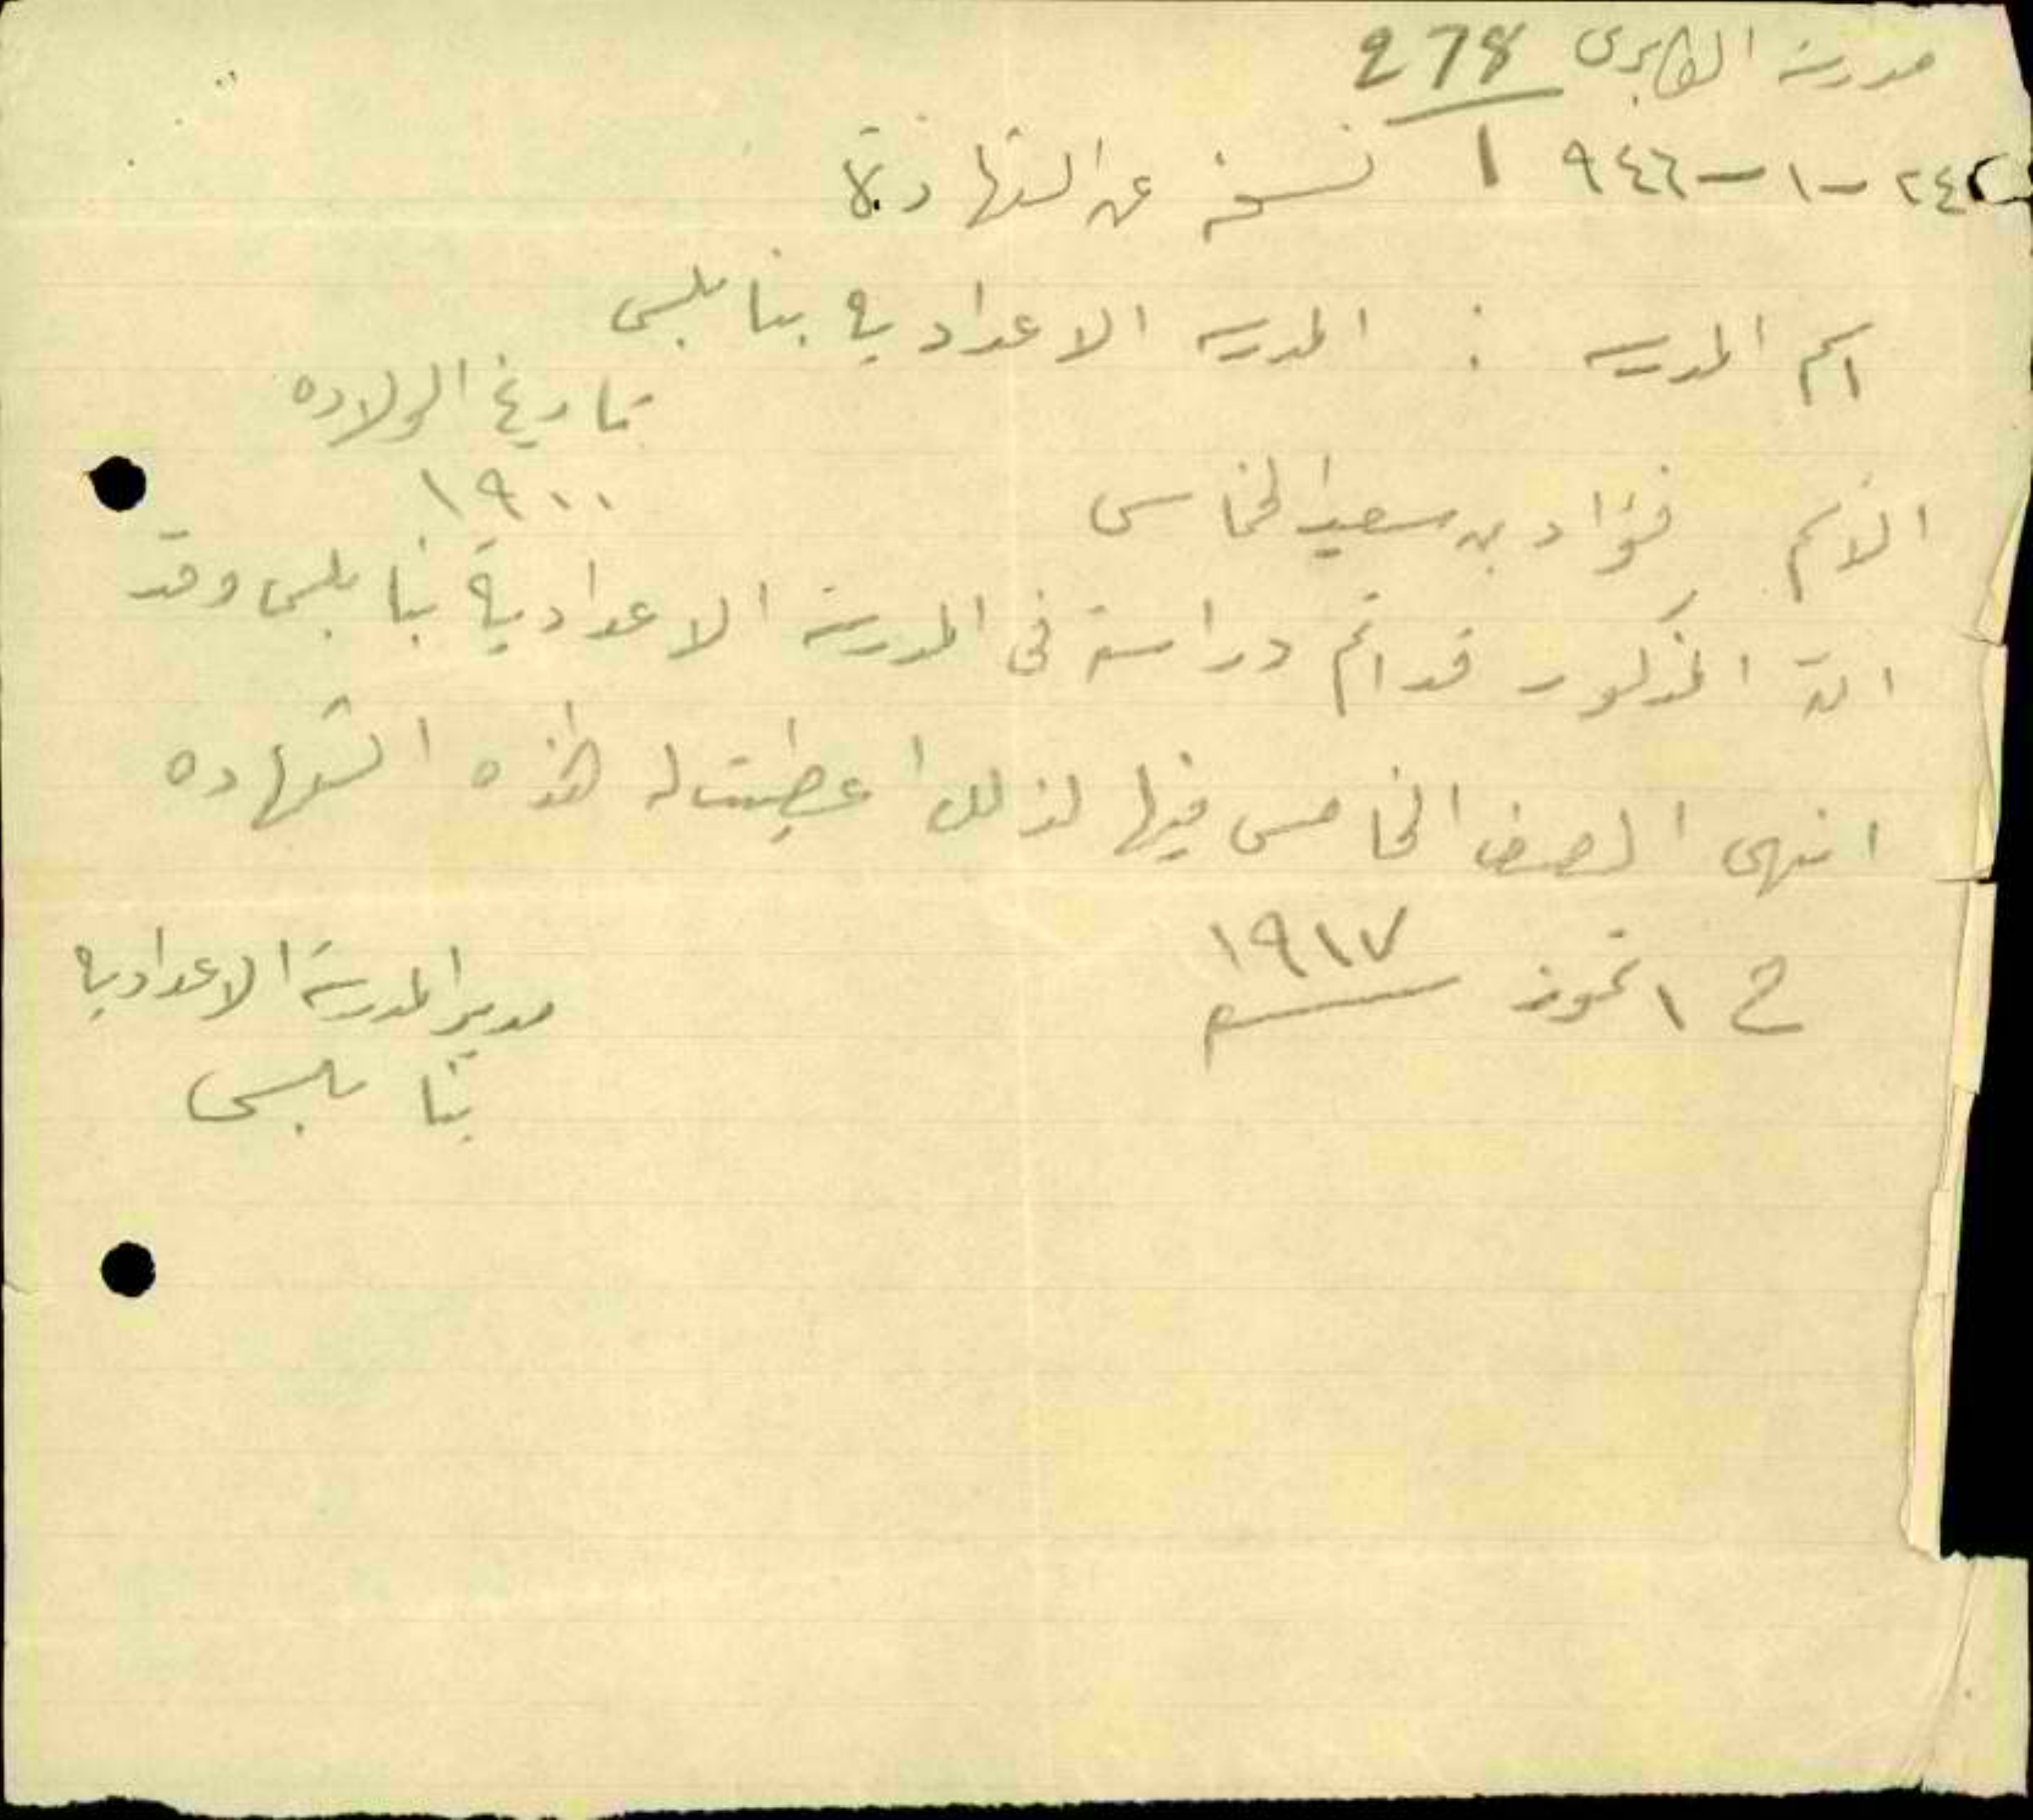 مدرسة الكابرى 278
٢٤-١-٩٤٦ ١ نسخة عن الشهادة
اسم المدرسه : المدرسه الاعداديه بنابلس
تاريخ الولاده
١٩٠٠
الاسم فؤاد بن سعيد الخماس
ان المذكور قد اتم دراسته فى المدرسة الاعدادية بنابلس وقد
انهى الصف الخامس فيها لذلك اعطيت له هذه الشهاده
فى ١ تموز ١٩١٧
مدير المدرسة الاعداديه
بنابلس